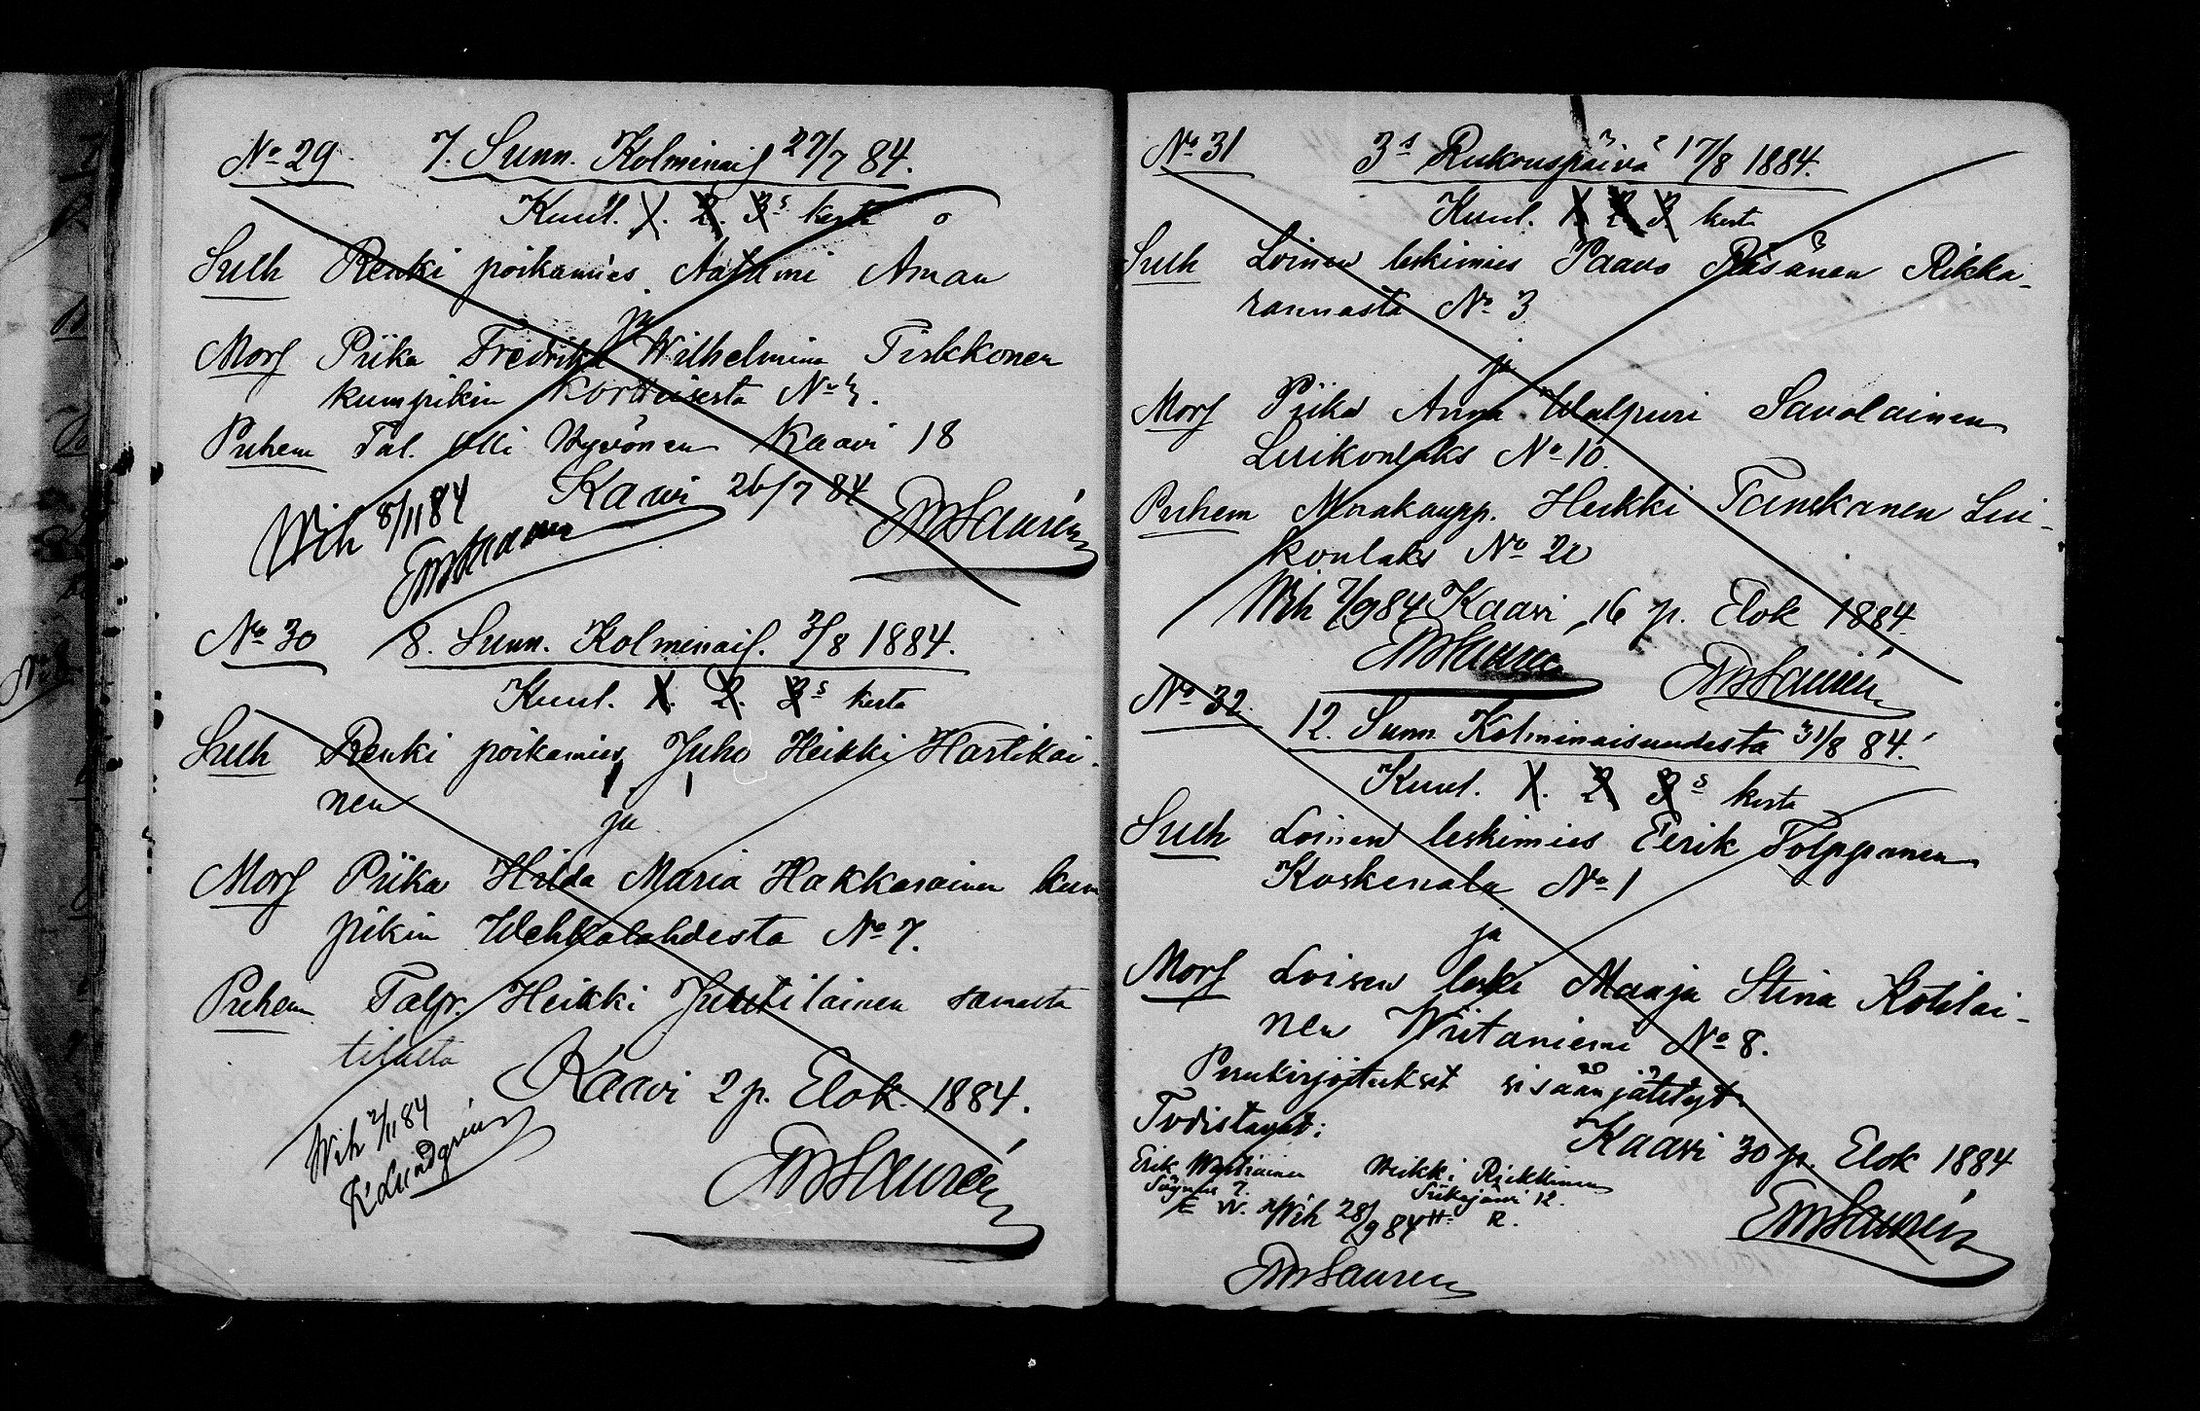 No 29. 7. Sunn. Kolminais 27/7 84.
Kuul. 1. 2. 3s kerta
Sulh Renki poikamies Aatami Aman
ja
Mors Piika Fredrika Wilhelmina Tirkkonen
kumpikin Kortteisesta No
Puhem Tal. Olli Hyvönen Kaavi 18
Kaavi 26/7 84
Wih 8/11 84
EMSaurén
No 30 8. Sunn. Kolminais. 3/8 1884.
Kuul. 1. 2. 3s kerta
Sulh Renki poikamies Juho Heikki Hartikai-
nen
ja
Mors Piika Hilda Maria Hakkarainen kum
pikin Wehkalahdesta No 7.
Puhem Talp. Heikki Juutilainen samasta
tilasta
Kaavi 2 p. Elok. 1884.
Wih 2/11 84
K Lundgrén
EMSaurén
No 31 3s Rukouspäivä 17/8 1884.
Kuul. 1. 2. 3. kerta
Sulh Loinen leskimies Paavo Räsänen Rikka-
rannasta No 3
ja
Mors Piika Anna Walpuri Savolainen
Luikonlaks No 10.
Puhem Maakaupp. Heikki Tanskanen Lui-
konlaks No 20
Wih 7/9 84 Kaavi 16 p. Elok 1884.
EMSaurén EMSaurén
No 32. 12. Sunn Kolminaisuudesta 31/8 84.
Kuul. 1. 2 3s kerta
Sulh Loinen leskimies Eerik Tolppanen
Koskenala No 1
ja
Mors Loisen leski Maaja Stina Kotilai-
nen Wiitaniemi No 8.
Perukirjoitukset sisäänjätetyt.
Todistavat: Kaavi 30 p. Elok 1884
Erik Heikki
7. Siikajärvi 12.
E W. H. R.
Wih 28/9 84
EMSaurén
EMSaurén